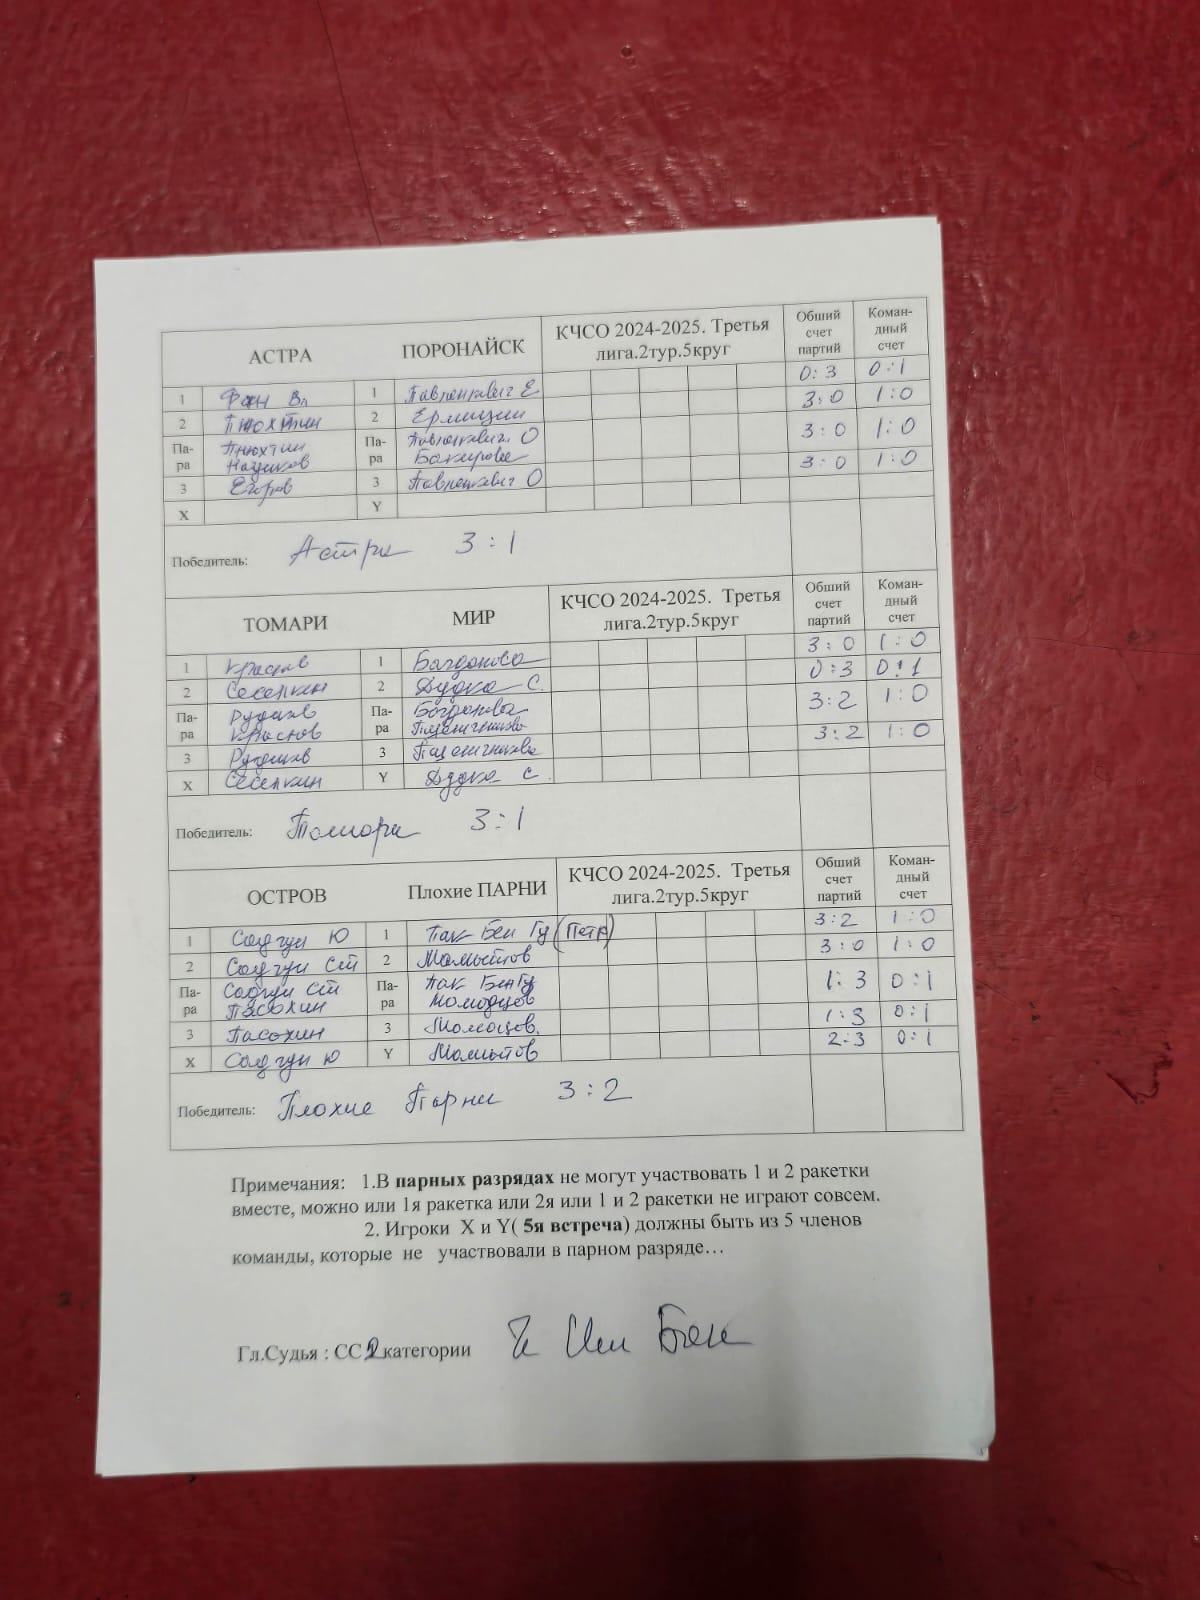 АСТРА ПОРОНАЙСК КЧСО 2024-2025. Третья лига.2тур.5круг Общий счет партий Коман-дный счет
1 Фан Вл 1 Павленкевич Е 0:3 0:1
2 Пнюхтин 2 3:0 1:0
Па-ра Пнюхтин Па-ра Павленкевич О 3:0 1:0
3 Егоров 3 Павленкевич О 3:0 1:0
X Y
Победитель: Астра 3:1
ТОМАРИ МИР КЧСО 2024-2025. Третья лига.2тур.5круг Общий счет партий Коман-дный счет
1 Краснов 1 Богданова 3:0 1:0
2 Сеселкин 2 Дудка С. 0:3 0:1
Па-ра Рудаков Краснов Па-ра Богданова Пшеничникова 3:2 1:0
3 Рудаков 3 Пшеничникова 3:2 1:0
X Сеселкин Y Дудка С.
Победитель: Томари 3:1
ОСТРОВ Плохие ПАРНИ КЧСО 2024-2025. Третья лига.2тур.5круг Общий счет партий Коман-дный счет
1 Ю 1 Пак Бен Гу (Петр) 3:2 1:0
2 Ст 2 Мамытов 3:0 1:0
Па-ра Ст Пасохин Па-ра Пак Бен Гу 1:3 0:1
3 Пасохин 3 1:3 0:1
X Ю Y Мамытов 2:3 0:1
Победитель: Плохие Парни 3:2
Примечания: 1.В парных разрядах не могут участвовать 1 и 2 ракетки
вместе, можно или 1я ракетка или 2я или 1 и 2 ракетки не играют совсем.
2. Игроки X и Y( 5я встреча) должны быть из 5 членов
команды, которые не участвовали в парном разряде…
Гл.Судья : СС 2 категории